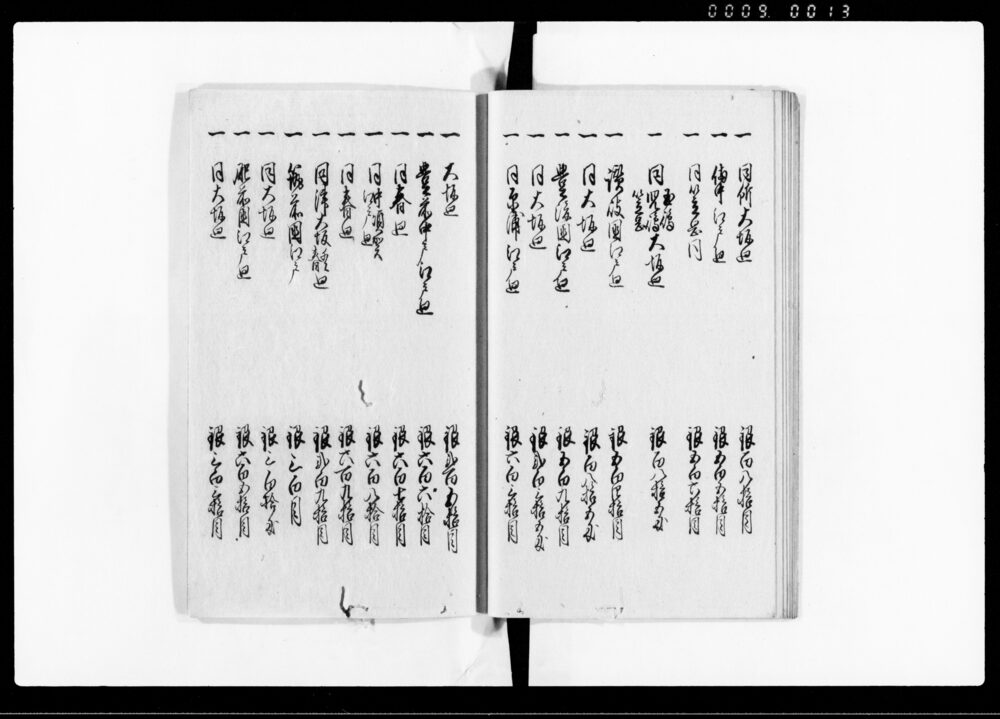 0009 0013
一 同所大坂廻 銀百八拾目
一 備中江戸廻 銀五百五拾目
一 同笠岡同 銀五百六拾目
一 同 玉嶋 笠岡 大坂廻 銀百八拾五匁
一 讃岐國江戸廻 銀五百四拾目
一 同大坂廻 銀百八拾五匁
一 豊後國江戸廻 銀五百九拾目
一 同大坂廻 銀弐百三拾五匁
一 同 浦江戸廻 銀六百三拾目
一 大坂廻 銀弐百五拾目
一 豊前中 江戸廻 銀六百六拾目
一 同春廻 銀六百七拾目
一 同中須賀江戸廻 銀六百八拾目
一 同春廻 銀六百九拾目
一 同津大坂 廻 銀弐百九拾目
一 筑前國江戸 銀三百目
一 同大坂廻 銀三百拾匁
一 肥前國江戸廻 銀六百五拾目
一 同大坂廻 銀三百三拾目